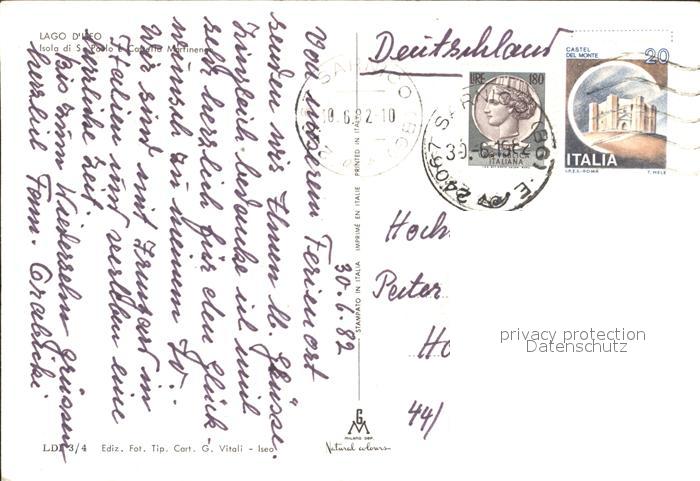 LAGO D'ISEO
Isola di S. Paolo e Casetta Martinengo
30.6.82
Von unserem Ferienort
senden wir Ihnen lb. Grüsse.
Hinzeit bedanke ich mich
sehr herzlich für den Glück-
wünsch zu meinem 70.
Wir sind mit in
Italien und verleben eine
herrliche Zeit.
Bis zum Wiedersehn grüssen
herzlich Fam.
STAMPATO IN ITALIA IMPRIMÉ EN ITALIE PRINTED IN ITALY
Deutschland
LIRE 180
ITALIANA
CASTEL
DEL MONTE
20
ITALIA
I.P.Z.S.-ROMA
SARNICO (BG)
30.6.82-10
24067 SARNICO (BG)
30.-6.1982
Hoch
Peiter
Ho
44/
privacy protection
Datenschutz
G M
MILANO DEP.
Natural colours
LDI 3/4 Ediz. Fot. Tip. Cart. G. Vitali - Iseo